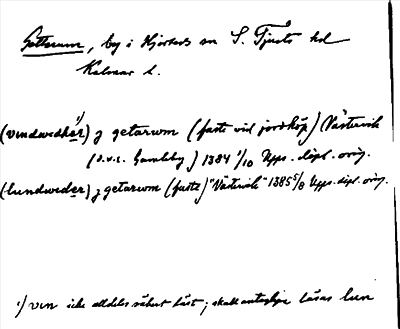 Getterum, by i Hjorteds sn S. Tjusts hd
Kalmar l.
(vindwedhër¹⁾) j getarum (faste vid jordköp) Västervik
(d.v.s. Gamleby) 1384 1/10 Upps. dipl. orig.
(lundweder) j getarum (faste) "Västervik" 1385 5/8 Upps. dipl. orig.
¹⁾ vin icke alldeles säkert läst; skall antagligen läsas lun